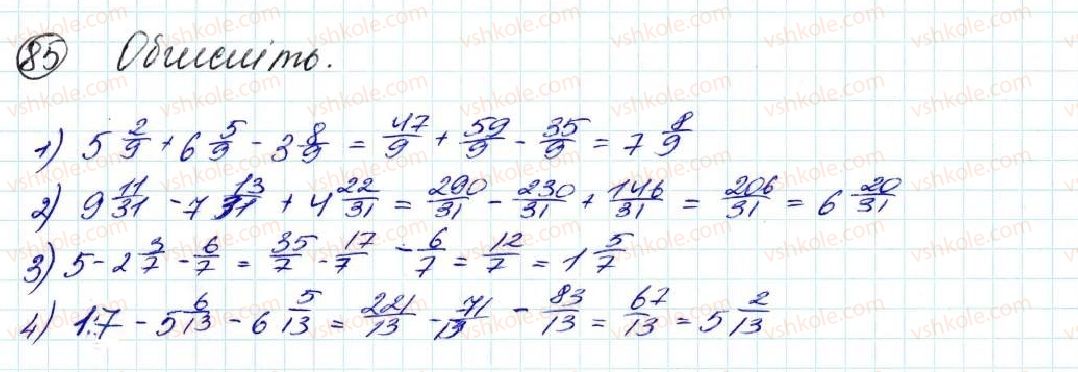 85 Обчисліть.
1) 5 2/9 + 6 5/9 - 3 8/9 = 47/9 + 59/9 - 35/9 = 7 8/9
2) 9 11/31 - 7 13/31 + 4 22/31 = 290/31 - 230/31 + 146/31 = 206/31 = 6 20/31
3) 5 - 2 3/7 - 6/7 = 35/7 - 17/7 - 6/7 = 12/7 = 1 5/7
4) 17 - 5 6/13 - 6 5/13 = 221/13 - 71/13 - 83/13 = 67/13 = 5 2/13
vshkole.com